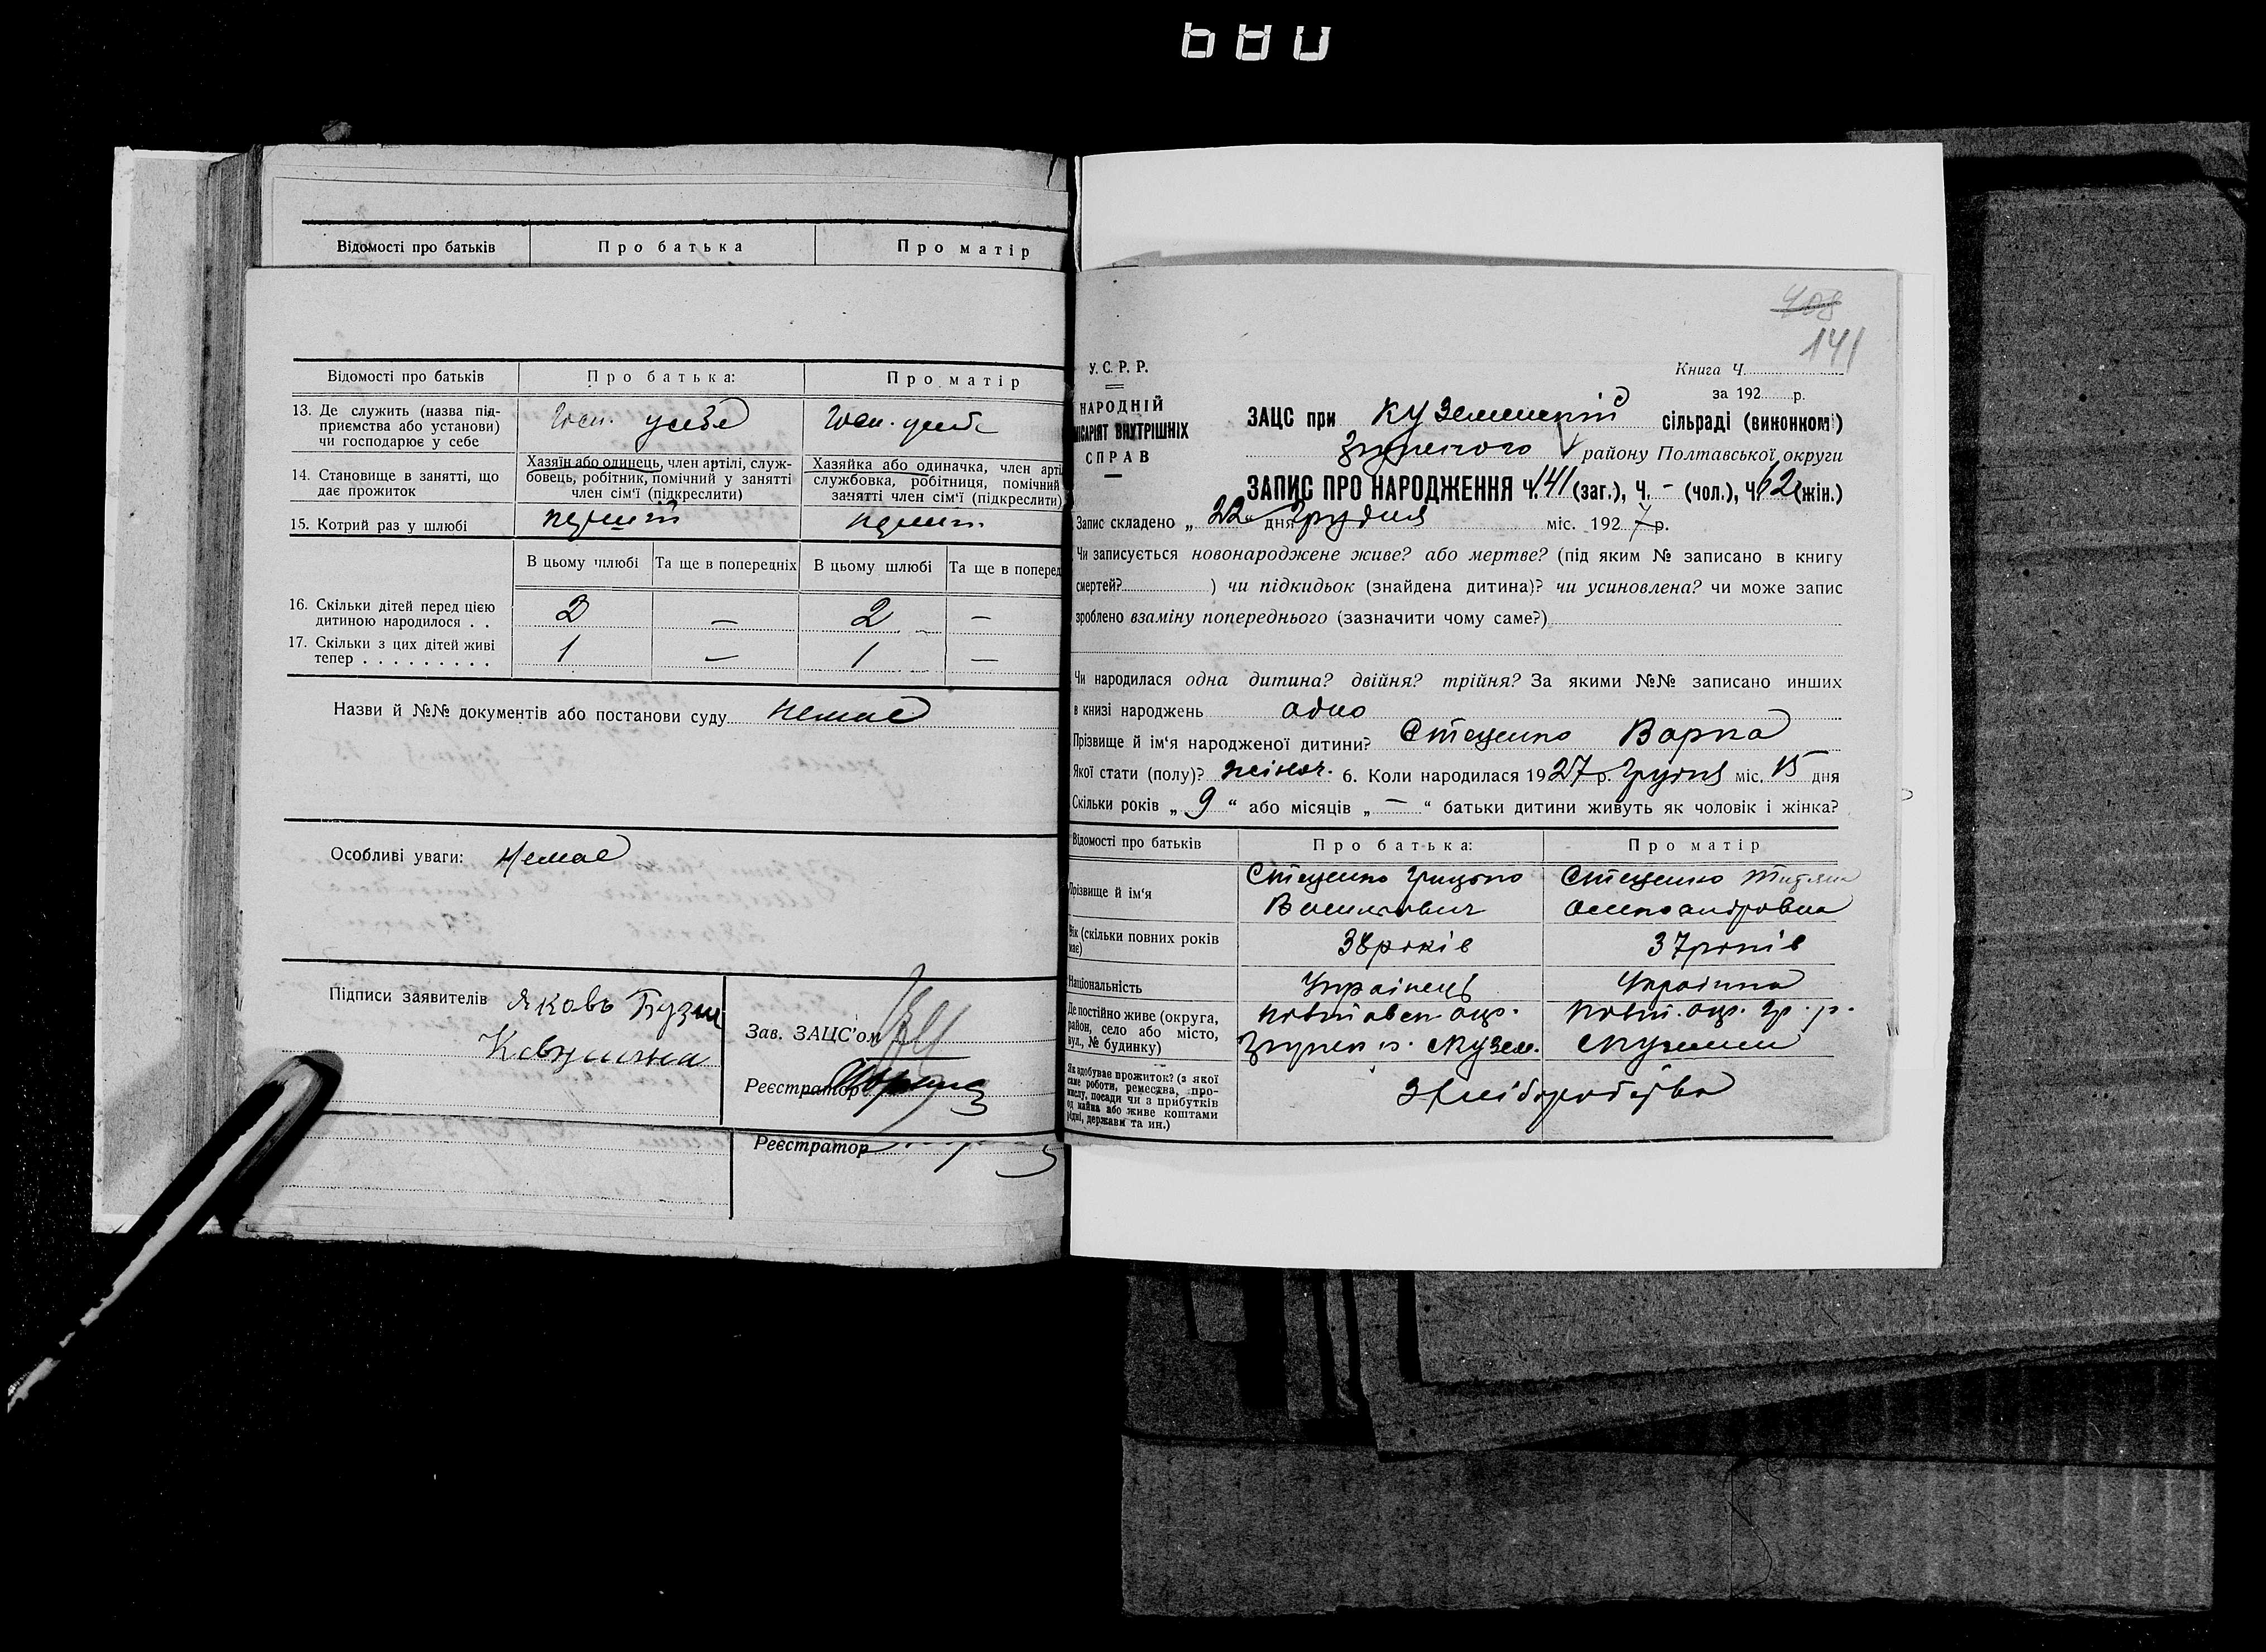 680
Відомості про батьків Про батька Про матір
Відомості про батьків Про батька: Про матір
13. Де служить (назва під-
приємства або установи)
чи господарює у себе
14. Становище в занятті, що
дає прожиток
Хазяїн або одинець, член артілі, служ-
бовець, робітник, помічний у занятті
член сім'ї (підкреслити)
Хазяйка або одиначка, член арті
службовка, робітниця, помічний
занятті член сім'ї (підкреслити)
15. Котрий раз у шлюбі
В цьому шлюбі Та ще в попередніх В цьому шлюбі Та ще в поперед
16. Скільки дітей перед цією
дитиною народилося . . 2 — 2 —
17. Скільки з цих дітей живі
тепер . . . . . . . . . 1 — 1 —
Назви й №№ документів або постанови суду немає
Особливі уваги: Немає
Підписи заявителів Яковъ
Зав. ЗАЦС'ом
Реєстратор
Реєстратор
408
141
У.С.Р.Р.
НАРОДНІЙ
ІСАРІЯТ ВНУТРІШНІХ
СПРАВ
Книга Ч.
за 192 р.
ЗАЦС при Куземенській сільраді (виконкомі)
району Полтавської округи
ЗАПИС ПРО НАРОДЖЕННЯ Ч. 141 (заг.), Ч. - (чол.), Ч. 62 (жін.)
Запис складено „ 22 “ дня Грудня міс. 1927 р.
Чи записується новонароджене живе? або мертве? (під яким № записано в книгу
смертей? ) чи підкидьок (знайдена дитина)? чи усиновлена? чи може запис
зроблено взаміну попереднього (зазначити чому саме?)
Чи народилася одна дитина? двійня? трійня? За якими №№ записано инших
в книзі народжень одно
Прізвище й ім'я народженої дитини? Стеценко Варка
Якої стати (полу)? жіноч. 6. Коли народилася 1927 р. Грудня міс. 15 дня
Скільки років „ 9 “ або місяців „ — “ батьки дитини живуть як чоловік і жінка?
Відомості про батьків Про батька: Про матір
Прізвище й ім'я
Стеценко Грицько
Васильович
Стеценко
Олександровна
Вік (скільки повних років
має) 38 років 37 років
Національність Українець Українка
Де постійно живе (округа,
район, село або місто,
вул., № будинку)
Як здобуває прожиток? (з якої
саме роботи, ремества, про-
мислу, посади чи з прибутків
од майна або живе коштами
рідні, держави та ин.)